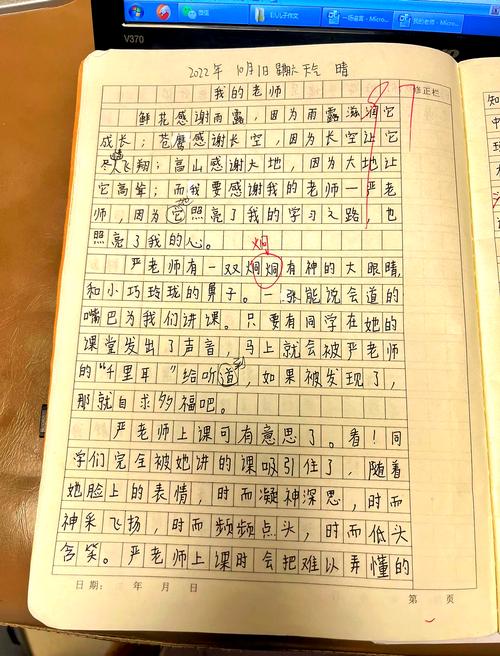 微信
一场谣言 - Micro...
我的老师 - Micro...
V370
2022年 10月1日 星期六 天气 晴
修正栏
87
我的老师
鲜花感谢雨露，因为雨露滋润它
成长；苍鹰感谢长空，因为长空让它
飞翔；高山感谢大地，因为大地让
它高耸；而我要感谢我的老师—严老
师，因为它照亮了我的学习之路，也
她
照亮了我的心。
炯
严老师有一双炯炯有神的大眼睛，
和小巧玲珑的鼻子。一张能说会道的
嘴巴为我们讲课。只要有同学在她的
课堂发出了声音，马上就会被严老师
的“千里耳”给听道，如果被发现了，
到
那就自求多福吧。
严老师上课可有意思了。看！同
学们完全被她讲的课吸引住了，随着
她脸上的表情，时而凝神深思，时而
神采飞扬，时而频频点头，时而低头
含笑。严老师上课时会把难以弄懂的
日期： 年 月 日
第 页